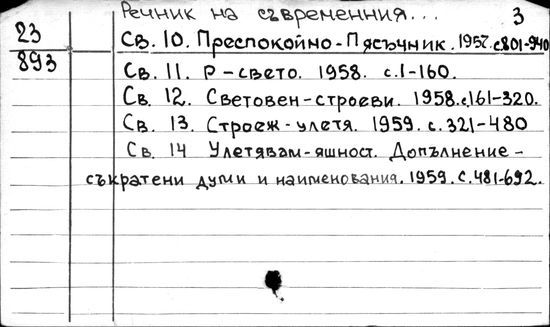 Речник на съвременния... 3
23 Св. 10. Преспокойно-Пясъчник. 1957. с.801-940
893 Св. 11. Р-свето. 1958. с.1-160.
Св. 12. Световен-строеви. 1958. с.161-320.
Св. 13. Строеж-улетя. 1959. с. 321-480
Св. 14 Улетявам-яшност. Допълнение-
съкратени думи и наименования. 1959. с.481-692.